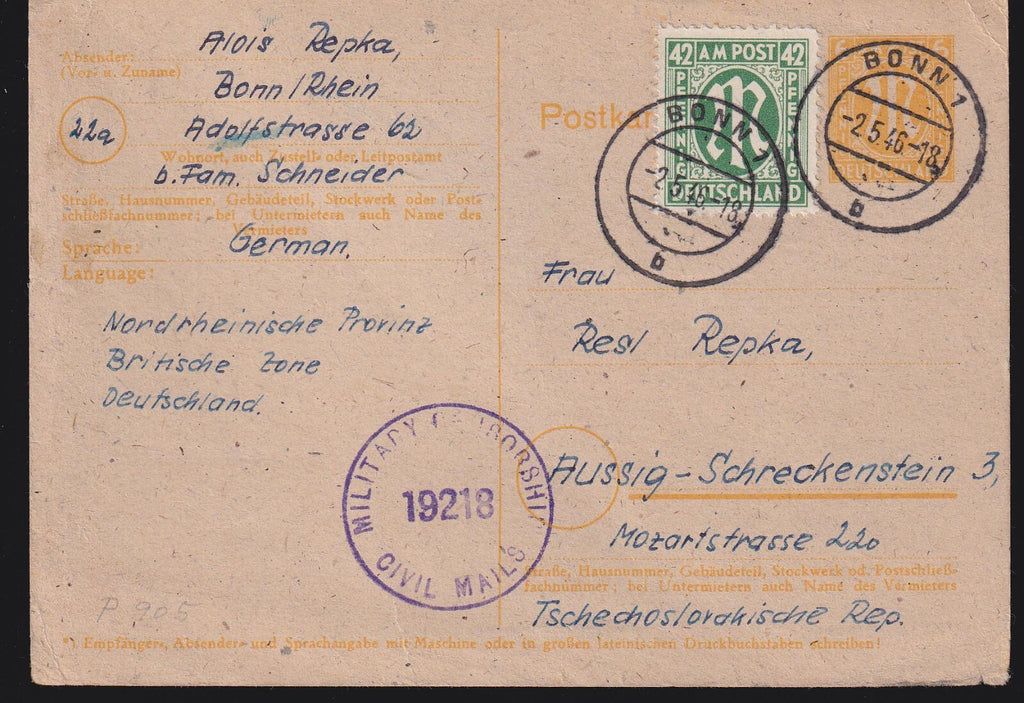 Absender:
(Vor- u. Zuname)
Alois Repka,
Bonn/Rhein
22a
Adolfstrasse 62
Wohnort, auch Zustell- oder Leitpostamt
b. Fam. Schneider
Straße, Hausnummer, Gebäudeteil, Stockwerk oder Post-
schließfachnummer; bei Untermietern auch Name des
Vermieters
Sprache:
German.
Language:
Nordrheinische Provinz
Britische Zone
Deutschland.
MILITARY CENSORSHIP
19218
CIVIL MAILS
P 905
42 AM POST 42
PFENNIG
PFENNIG
DEUTSCHLAND
BONN 1
-2.5.46-18
b
6 6
DEUTSCHLAND
BONN 1
-2.5.46-18
b
Postkar
Frau
Resl Repka,
Aussig-Schreckenstein 3,
Mozartstrasse 220
Straße, Hausnummer, Gebäudeteil, Stockwerk od. Postschließ-
fachnummer; bei Untermietern auch Name des Vermieters
Tschechoslovakische Rep.
*) Empfänger-, Absender- und Sprachangabe mit Maschine oder in großen lateinischen Druckbuchstaben schreiben!